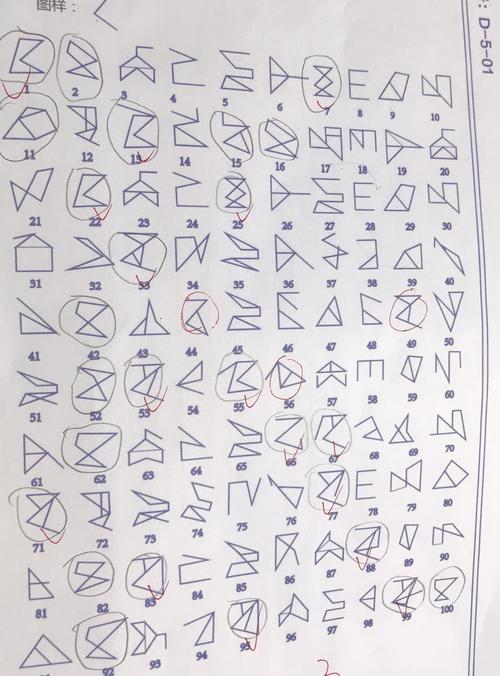 图样：
: D-5-01
1 2 3 4 5 6 7 8 9 10
11 12 13 14 15 16 17 18 19 20
21 22 23 24 25 26 27 28 29 30
31 32 33 34 35 36 37 38 39 40
41 42 43 44 45 46 47 48 49 50
51 52 53 54 55 56 57 58 59 60
61 62 63 64 65 66 67 68 69 70
71 72 73 74 75 76 77 78 79 80
81 82 83 84 85 86 87 88 89 90
92 93 94 95 96 97 98 99 100